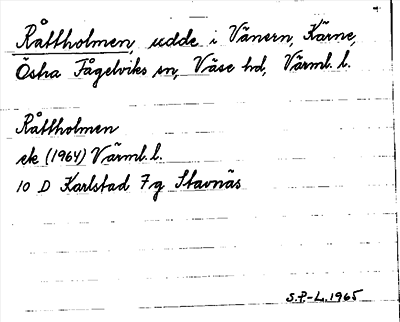 Råttholmen, udde i Vänern, Kärne,
Östra Fågelviks sn, Väse hd, Värml. l.
Råttholmen
ek (1964) Värml. l.
10 D Karlstad 7g Stavnäs
S.P-L. 1965